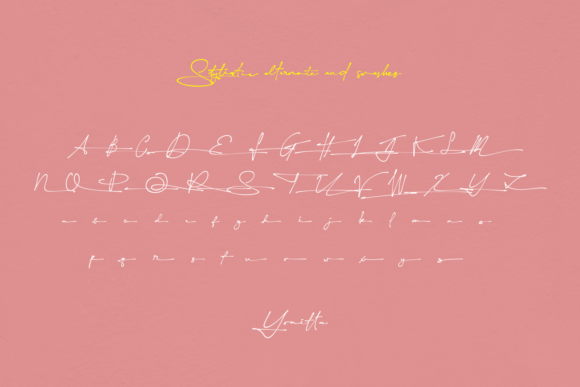 Stylistic alternate and swashes
A B C D E f G H I J K L M
N O P Q R S T U V W X Y Z
a b c d e f g h i j k l m n o
p q r s t u v w x y z
Yonitta